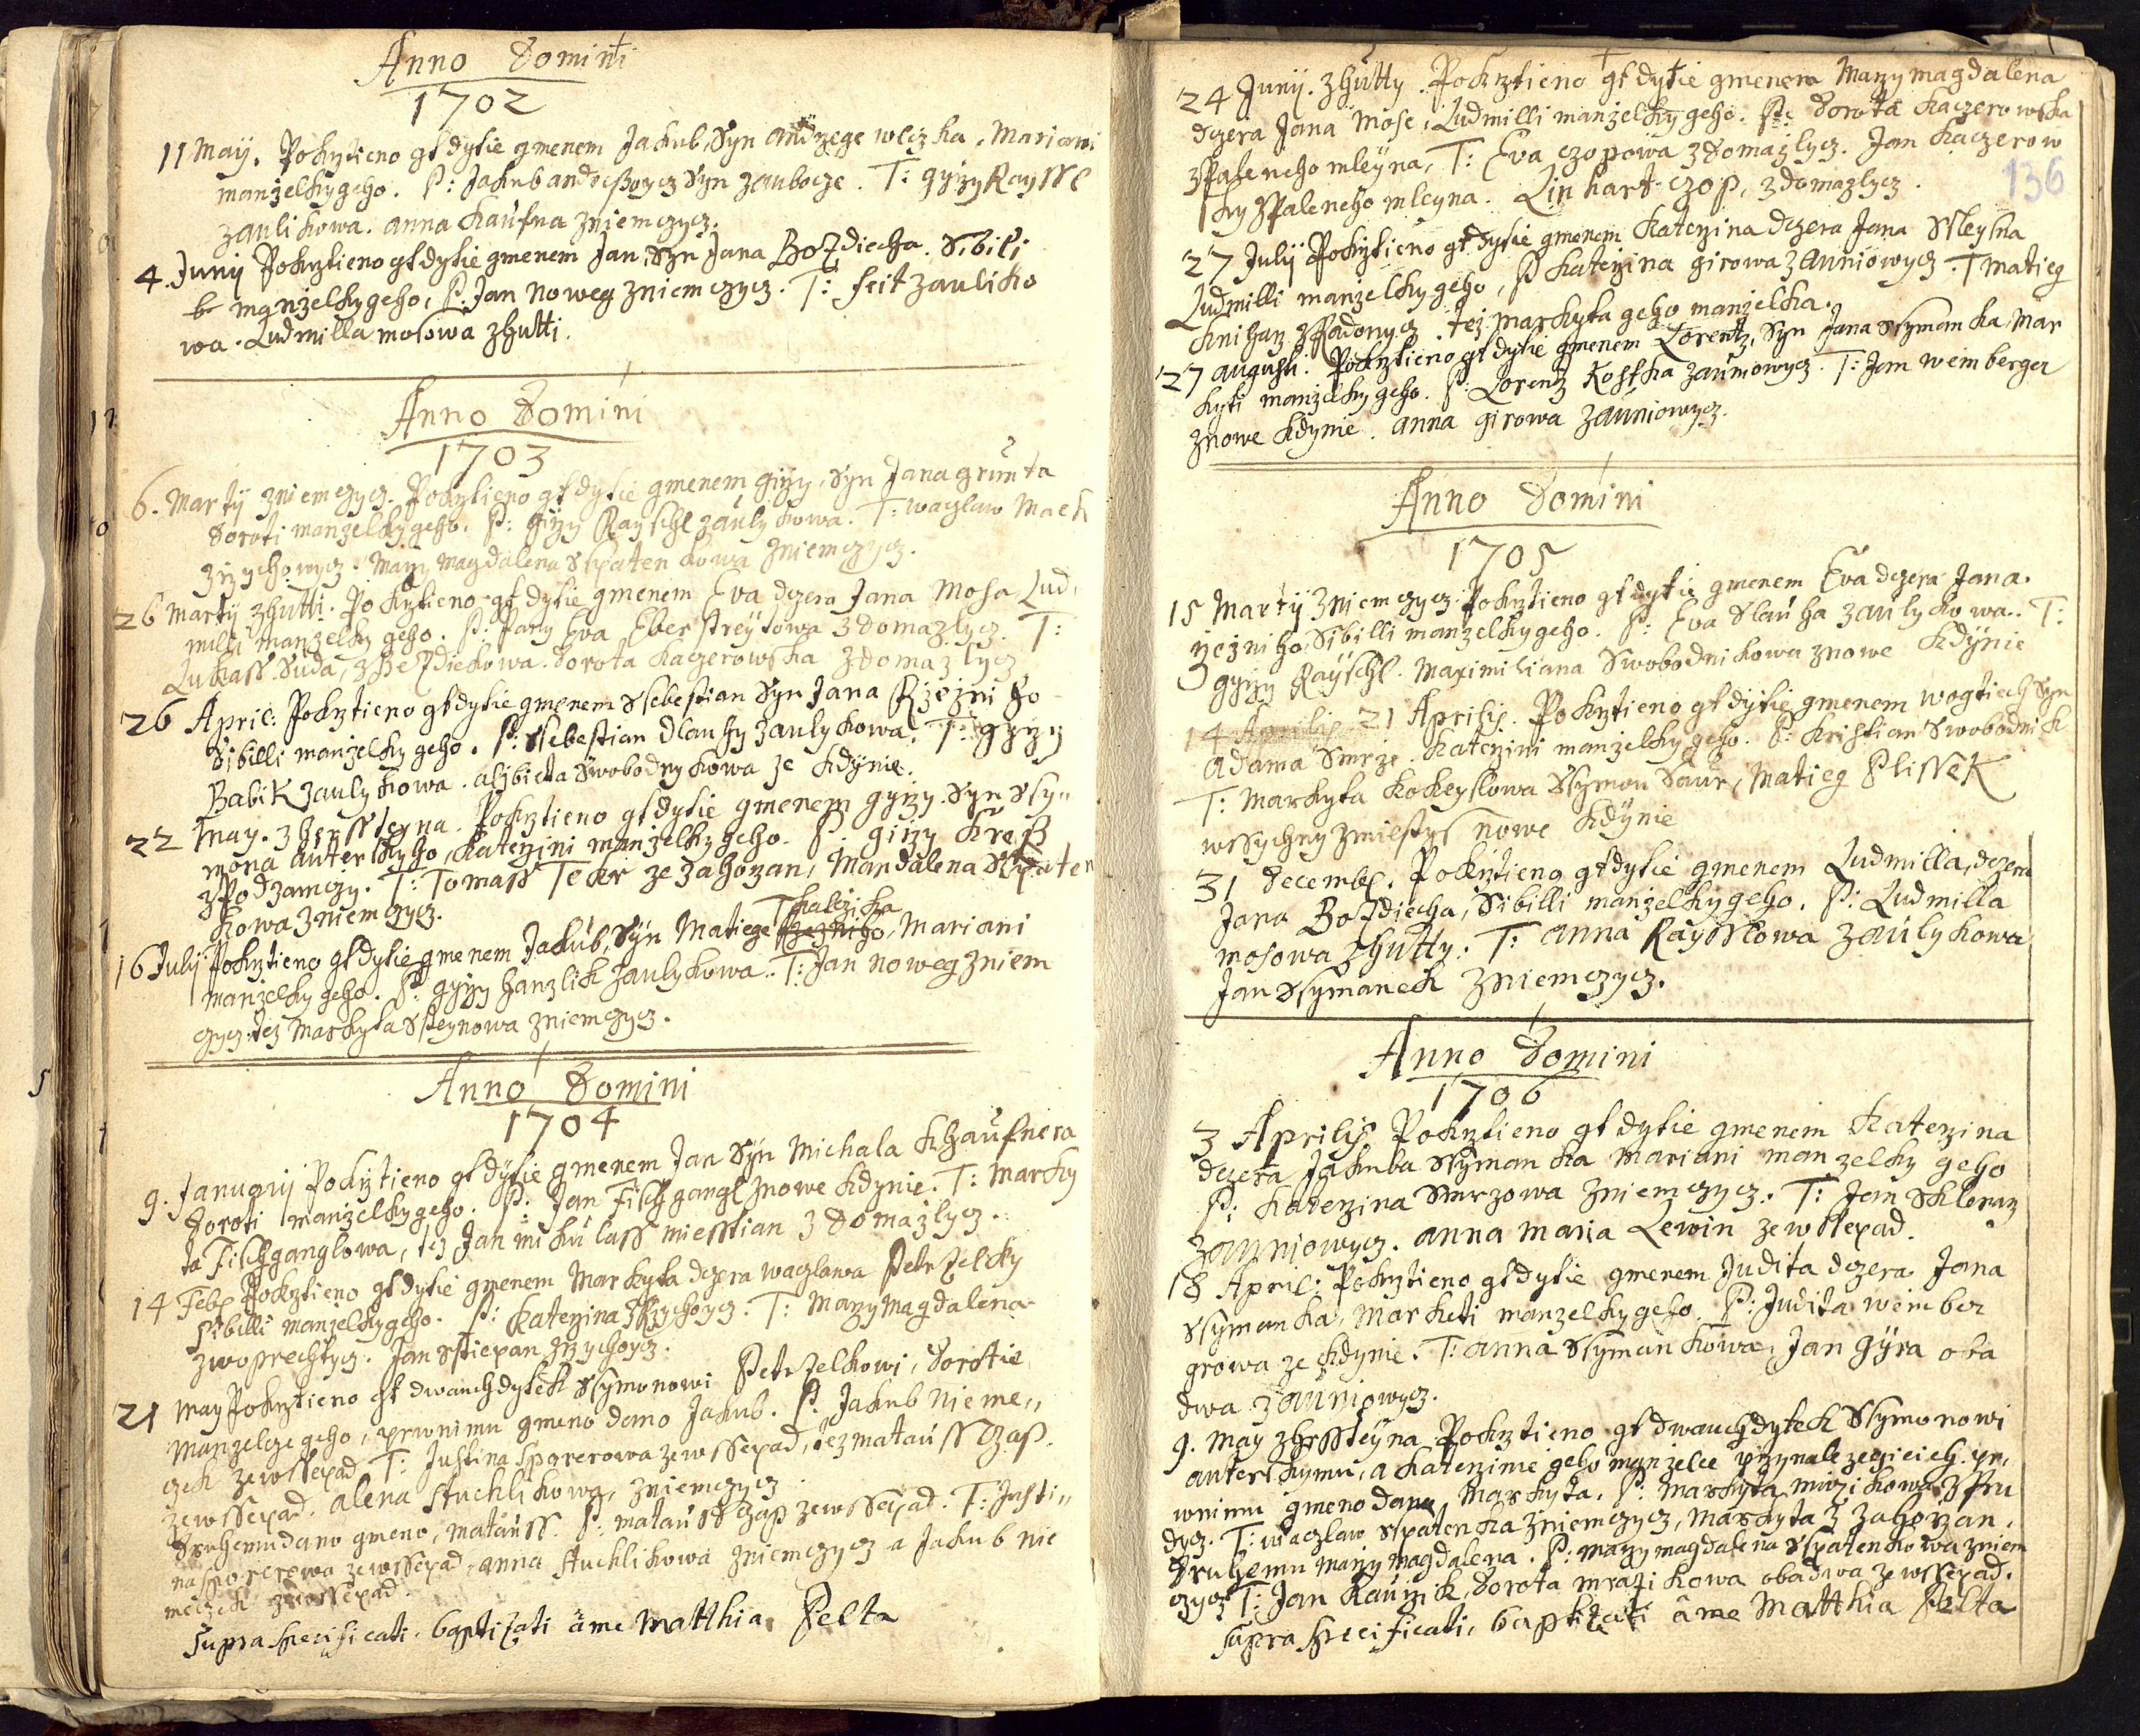 Anno Domini
1702
11 May. Pokrztieno gt dytie gmenem Jakub, Syn andrzege wlczka, Mariani
manzelky geho. P: Jakub andressowycz Syn zaubocze. T: gyrzy Rayssl
zaulikowa. anna Kaufna zniemczycz.
4. Junij Pokrztieno gt dytie gmenem Jan, Syn Jana Bozdiecha. Sibili
manzelky geho, P: Jan Noweg zniemczycz. T: feit zauliko
wa. Ludmilla mosowa zhutti.
Anno Domini
1703
6. Martij zniemczycz. Pokrztieno gt dytie gmenem girzy, Syn Jana grunta
Doroti manzelky geho. P: girzy Rayschl zaulykowa. T: waczlaw Mach
zrzychowycz. Marzy Magdalena Sspatenkowa zniemczycz.
26 Martij zhutti. Pokrztieno gt dytie gmenem Eva dczera Jana Mosa Lud,
milli manzelky geho. P: Pany Eva Eberstreytowa zdomazlycz. T:
Lukass Suda, zhezdiekowa. Dorota Kaczerowska zdomazlycz
26 April: Pokrztieno gt dytie gmenem Ssebestian Syn Jana Rzezniho
Sibilli manzelky geho. P: Ssebestian Dlauhy zaulykowa. T: gyrzy
Babik zaulykowa. alzbieta Swobodnykowa ze Kdynie.
22 May. zhrssteyna. Pokrztieno gt dytie gmenem gyrzy. Syn Ssy"
mona auterskyho, Katerzini manzelky geho. P. girzy Kreß
zPodzamczy. T: Tomass Tekr ze zahorzan, Mandalena Sspaten
kowa zniemczycz.
16 July Pokrztieno gt dytie gmenem Jakub, Syn Matiege Tkalczika, Mariani
manzelky geho. P: gyrzy hanzlik zaulykowa. T: Jan noweg zniem
czycz. tez Markyta Ssteynowa zniemczycz.
Anno Domini
1704
9. Januarij Pokrztieno gt dytie gmenem Jan Syn Michala Khaufnera
Doroti manzelky geho. P: Jan Fischgangl znowe Kdynie. T: Marky
ta Fischganglowa, tez Jan mikulass miesstian z Domazlycz.
14 Feb. Pokrztieno gt dytie gmenem Markyta dczera waczlawa Petrzelky
Sibilli manzelky geho. P: Katerzina zRzychoycz. T: Marzy Magdalena
zwoprechtycz. Jan Sstiepan zrzychoycz.
21 May Pokrztieno gt dwauch dytek Ssymonowi Petrzelkowi, Dorotie
Manzelcze geho, prwnimu gmeno dano Jakub. P. Jakub nieme"
czek zewssepad T: Justina Sporerowa zewssepad, tez matauss Czap.
zewssepad. alena Stuchlikowa, zniemczycz.
Druhemu dano gmeno, matauss. P: matauss Czap zewssepad. T: Justi"
na Sporerowa zewssepad. anna Stuchlikowa zniemczycz a Jakub nie
meczek zewssepad.
supra specificati. baptizati âme Matthia Pelta
24 Junij. zhutty. Pokrztieno gt dytie gmenem Marzy magdalena
dczera Jana Mose, Ludmilli manzelky geho. P: Dorota Kaczerowska
zPaleneho mleyna, T: Eva czopowa zDomazlycz. Jan Kaczerow
sky zPaleneho mleyna. Linhart czop, zdomazlycz.
136
27 July Pokrztieno gt dytie gmenem Katerzina dczera Jana Ssleysna
Ludmilli manzelky geho, P Katerzina girowa zauniowycz. T Matieg
Kniharz zPadonycz. tez Markyta geho manzelka.
27 augusti. Pokrztieno gt dytie gmenem Lorentz, Syn Jana Ssymanka, Mar
kyti manzelky geho. P: Lorentz Kostka zauniowycz. T: Jan weinberger
znowe Kdynie. anna girowa zauniowycz.
Anno Domini
1705
15 Martij zniemczycz. Pokrztieno gt dytie gmenem Eva dczera Jana.
rzezniho, Sibilli manzelky geho. P: Eva Slauha zaulykowa. T:
gyrzy Rayschl. Maximiliana Swobodnikowa znowe Kdynie
14 Aprilis 21 Aprilis. Pokrztieno gt dytie gmenem wogtiech Syn
Adama Smrze. Katerzini manzelky geho. P: Kristian Swobodnik
T: Markyta Kokeyslowa Ssymon Saur, Matieg Plissek
wssychny zmiestys nowe Kdynie
31 Decemb. Pokrztieno gt dytie gmenem Ludmilla, dczera
Jana Bozdiecha, Sibilli manzelky geho. P: Ludmilla
mosowa zhutty: T: anna Raysslowa zaulykowa
Jan Ssymanek zniemczycz.
Anno Domini
1706
3 Aprilis Pokrztieno gt dytie gmenem Katerzina
dczera Jakuba Ssymanka Mariani manzelky geho
P: Katerzina Smrzowa zniemczycz. T: Jan Ssklenarz
zauniowycz. anna Maria Lewin zewssepad.
18 April: Pokrztieno gt dytie gmenem Judita dczera Jana
Ssymanka, Marketi manzelky geho. P: Judita weinber
growa ze Kdynie. T: anna Ssymankowa, Jan Gyra oba
dwa zauniowycz.
9. May zhrssteyna Pokrztieno gt dwauch dytek Ssymonowi
auterskymu, a Katerzinie geho manzelce przynalezegicich. pr,
wnimu gmeno dano, Markyta. P: Markyta mirzikowa zPru
dycz. T: waczlaw Sspatenka zniemczycz, Markyta z zahorzan.
Druhemu Marzy Magdalena. P: Marzy magdalena Sspatenkowa zniem
czycz T: Jan Kaurzik, Dorota mrazikowa obadwa zewssepad.
supra specificati, baptizati âme Matthia Pelta